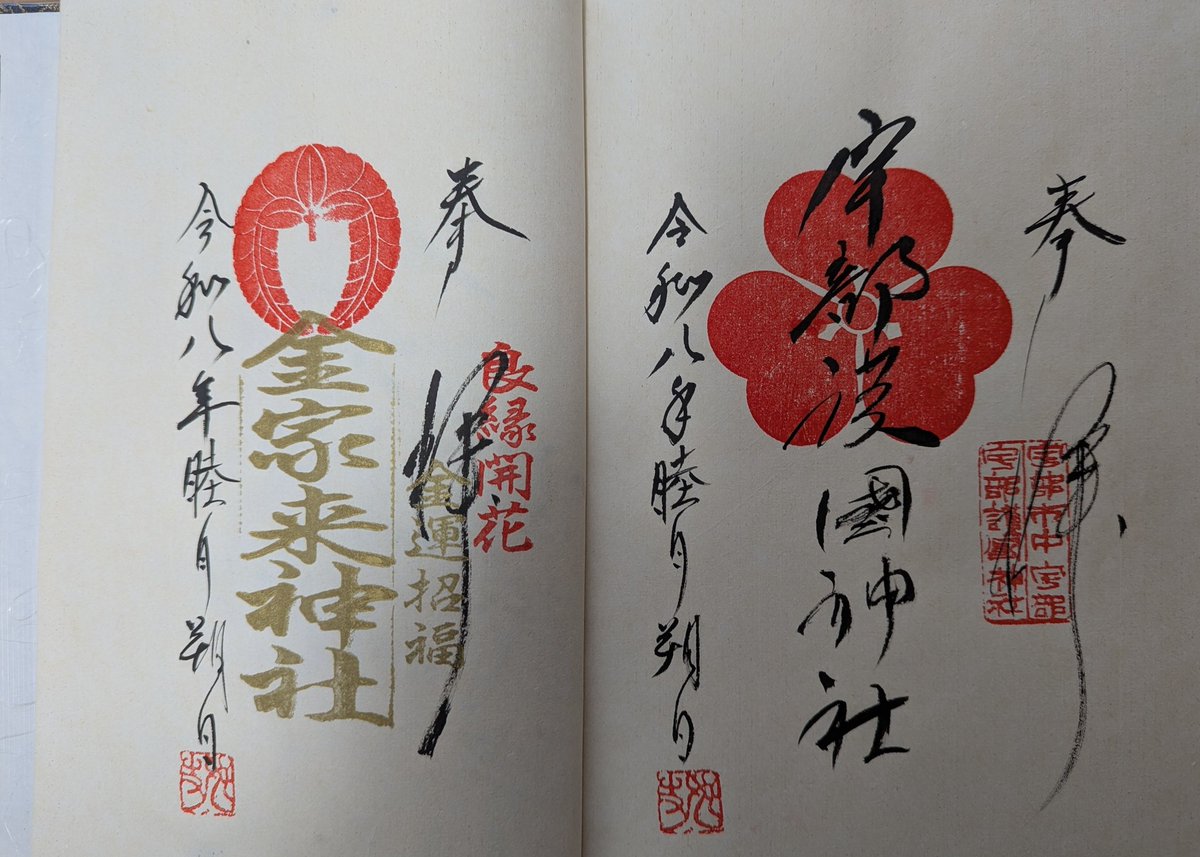 奉拝
宇部市中宇部
宇部護國神社
宇部護國神社
令和八年睦月朔日
奉拝
良縁開花
金運招福
金家来神社
令和八年睦月朔日